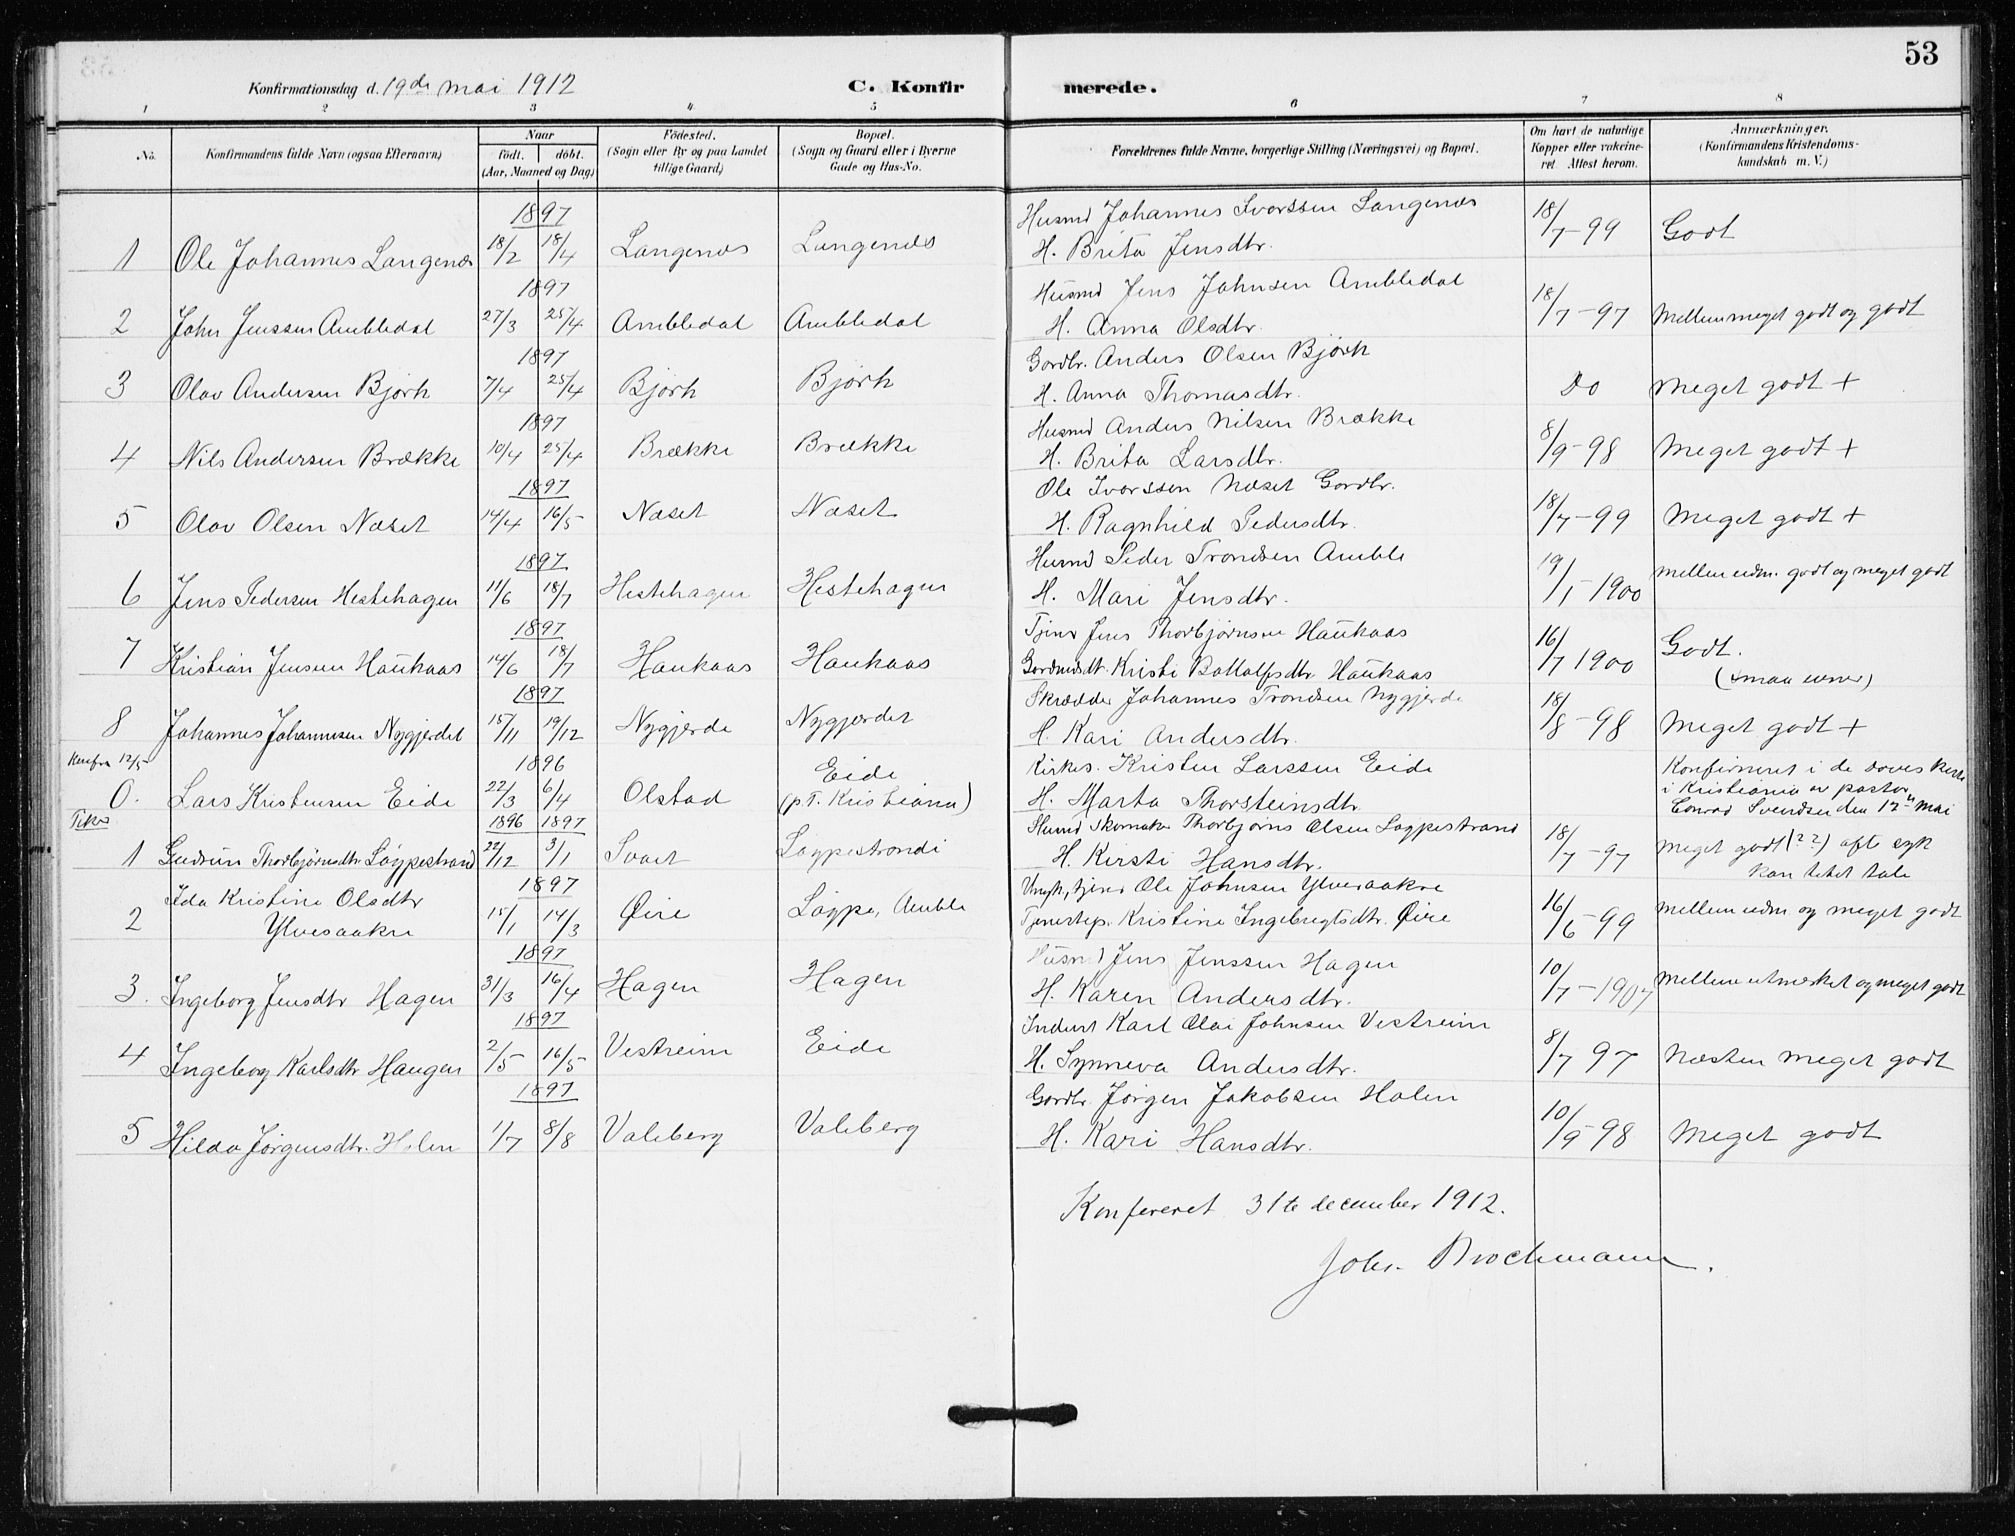 53
Konfirmationsdag d. 19de mai 1912
C. Konfir merede.
1 2 3 4 5 6 7 8
No.
Konfirmandens fulde Navn (ogsaa Efternavn)
Naar
födt. döbt.
(Aar, Maaned og Dag)
Födested.
(Sogn eller By og paa Landet
tillige Gaard)
Bopæl.
(Sogn og Gaard eller i Byerne
Gade og Hus-No.
Forældrenes fulde Navne, borgerlige Stilling (Næringsvei) og Bopæl.
Om havt de naturlige
Kopper eller vakcine-
ret Attest herom.
Anmærkninger.
(Konfirmandens Kristendoms-
kundskab m. V.)
1897 Husmd Johannes Ivarssen Langenæs
1 Ole Johannes Langenæs 18/2 18/4 Langenæs Langenæs H. Brita Jensdtr. 18/7-99 Godt
1897 Husmd Jens Johnsen Ambledal
2 John Jenssen Ambledal 27/3 25/4 Ambledal Ambledal H. Anna Olsdtr. 18/7-97 Mellem meget godt og godt
1897 Gardbr. Anders Olsen Bjørk
3 Olav Andersen Bjørk 7/4 25/4 Bjørk Bjørk H. Anna Thomasdtr. Do Meget godt +
1897 Husmd Anders Nilsen Brække
4 Nils Andersen Brække 10/4 25/4 Brække Brække H. Brita Larsdtr. 8/9-98 Meget godt +
1897 Ole Ivarssen Næset Gardbr.
5 Olav Olsen Næset 14/4 16/5 Næset Næset H. Ragnhild Pedersdtr. 18/7-99 Meget godt +
1897 Husmd Peder Trondsen Amble
6 Jens Pedersen Hestehagen 11/6 18/7 Hestehagen Hestehagen H. Mari Jensdtr. 19/1 1900 Mellem udm. godt og meget godt
1897 Tjener Jens Thorbjørnsen Haukaas
7 Kristian Jensen Haukaas 14/6 18/7 Haukaas Haukaas Gardmdsdt. Kristi Bottolfsdtr. Haukaas 16/7 1900 Godt.
(smaa evner)
1897 Skrædder Johannes Trondsen Nygjerde
8 Johannes Johannesen Nygjerdet 15/11 19/12 Nygjerde Nygjerdet H. Kari Andersdtr. 18/8-98 Meget godt +
12/5 1896 Kirkes. Kristen Larssen Eide
0. Lars Kristensen Eide 22/3 6/4 Olstad Eide
(p.t. Kristiania) H. Marta Thorsteinsdtr. Konfirmeret i de døves kirke
i Kristiania av pastor
Conrad Svendsen den 12te mai
Piker 1896 1897 Husmd Skomaker Thorbjørns Olsen Løypestrand
1 Gudrun Thorbjørnsdtr Løypestrand 22/12 3/1 Løypestrondi H. Kirsti Hansdtr. 18/7-97 Meget godt (??) ofte syk
kan litet tale
Ida Kristine Olsdtr 1897 Ungk, tjener Ole Johnsen Ylvesaakre
2 Ylvesaakre 15/1 14/3 Øire Løype, Amble Tjenestep. Kristine Ingebrigtsdtr. Øire 16/6-99 Mellem udm og meget godt
1897 Husmd Jens Jenssen Hagen
3. Ingeborg Jensdtr Hagen 31/3 16/4 Hagen Hagen H. Karen Andersdtr. 10/7-1907 Mellem utmerket og meget godt
1897 Inderst Karl Olai Johnsen Vestreim
4 Ingeborg Karlsdtr Haugen 2/5 16/5 Vestreim Eide H. Synneva Andersdtr. 8/7 97 Næsten meget godt
1897 Gardbr. Jørgen Jakobsen Holen
5 Hilda Jørgensdtr. Holen 1/7 8/8 Valeberg Valeberg H. Kari Hansdtr. 10/9-98 Meget godt
Konfereret 31te december 1912.
Johs. Brochmann.